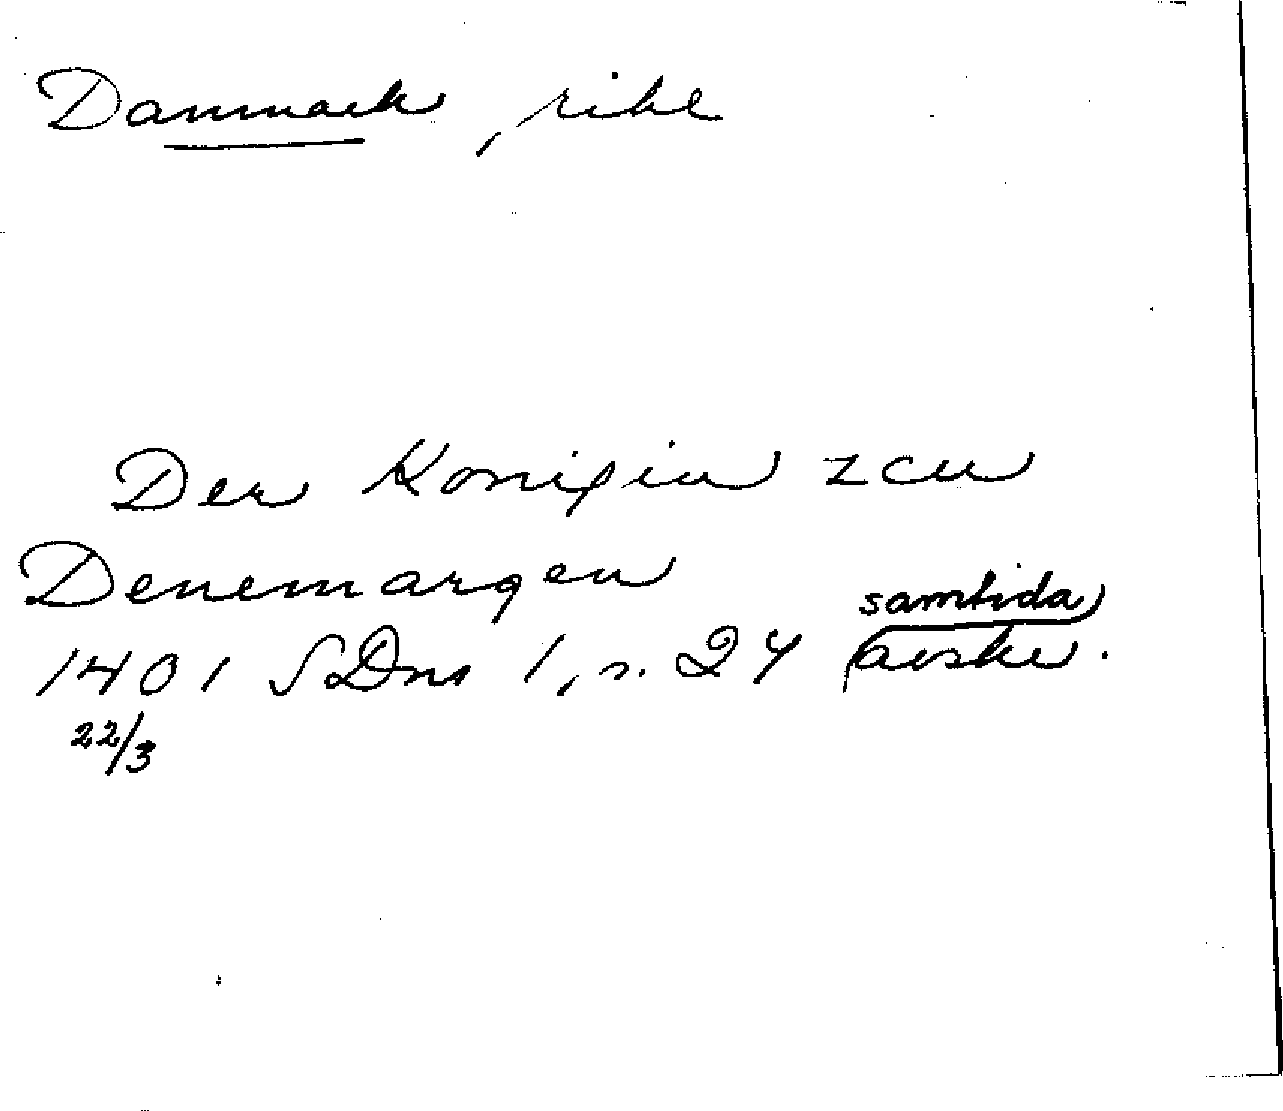 Danmark, rike
Der Konigin zcu
Denemargen
samtida
1401 SDns 1, s. 24 avskr.
22/3